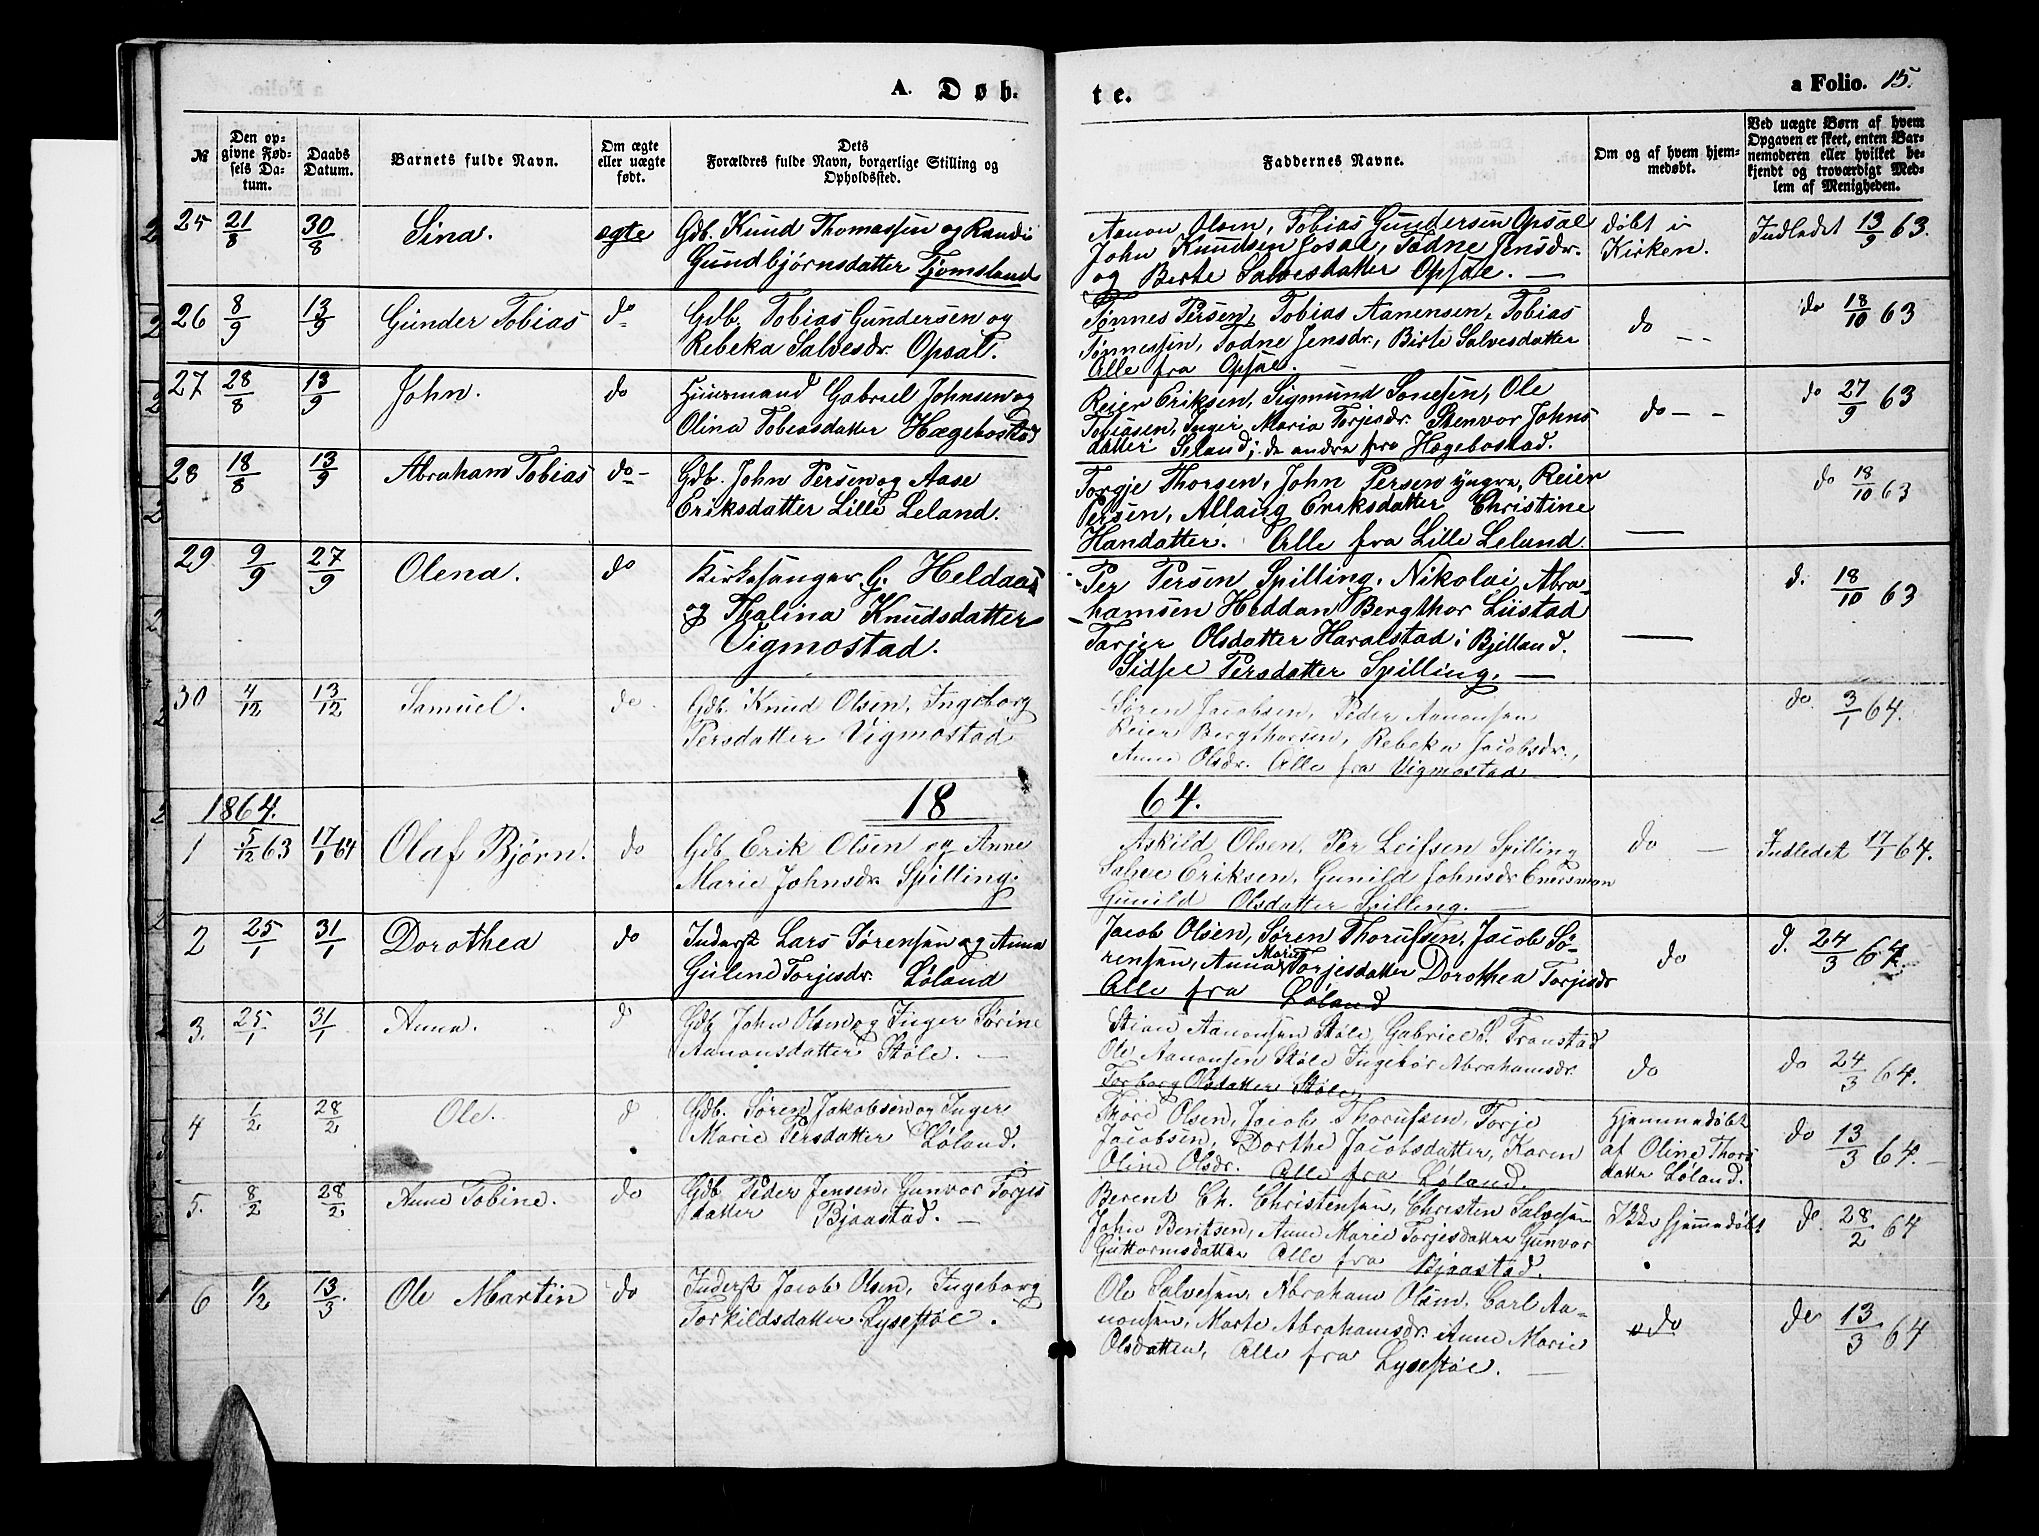 A. Døb-
te.
a Folio. 15.
№
Den op-
givne Fød-
sels Da-
tum.
Daabs
Datum.
Barnets fulde Navn.
Om ægte
eller uægte
født.
Dets
Forældres fulde Navn, borgerlige Stilling og
Opholdssted.
Faddernes Navne.
Om og af hvem hjem-
medøbt.
Ved uægte Børn af hvem
Opgaven er skeet, enten Bar-
nemoderen eller hvilket be-
kjendt og troværdigt Med-
lem af Menigheden.
25 21/8 30/8 Sina. ægte
Gdb. Knud Thomassen og Randi
Gundbjørnsdatter Tjomsland
Aanon Olsen, Tobias Gundersen Opsal
John Knudsen Josal, Todne Jensdr.
og Birte Salvesdatter Opsal. —
døbt i
Kirken.
Indledet 13/9 63.
26 8/9 13/9 Gunder Tobias do
Gdb. Tobias Gundersen og
Rebeka Salvesdr. Opsal.
Tønnes Persen, Tobias Aanensen, Tobias
Tønnessen, Todne Jensdr., Birte Salvesdatter
Alle fra Opsal. —
do
do 18/10 63
27 28/8 13/9 John. do
Huusmand Gabriel Johnsen og
Olina Tobiasdatter Hægebostad
Reier Eriksen, Sigmund Sonesen, Ole
Tobiasen, Inger Maria Torjesdr. Stenvor Johns
datter Leland; de andre fra Hægebostad.
do - -
do 27/9 63
28 18/8 13/9 Abraham Tobias do -
Gdb. John Persen og Aase
Eriksdatter Lille Leland.
Torgje Thorsen, John Persen yngre, Reier
Persen, Allaug Eriksdatter Christine
Handatter. Alle fra Lille Leland.
—
do 18/10 63
29 9/9 27/9 Olena. do
Kirkesanger G. Heldaas
og Thalina Knudsdatter
Vigmostad.
Per Persen Spilling, Nikolai Abra-
hamsen Heddan Bergthor Liistad
Torjer Olsdatter Haralstad i Bjelland.
Sidsel Persdatter Spilling. —
—
d. 18/10 63
30 4/12 13/12 Samuel. do
Gdb. Knud Olsen, Ingeborg
Persdatter Vigmostad
Søren Jacobsen, Peder Aanonsen
Reier Bergthorsen, Rebeka Jacobsdr.,
Anne Olsdr. Alle fra Vigmostad
do 3/1 64.
1864.
18
64.
1 5/12 63 17/1 64 Olaf Bjørn. do
Gdb. Erik Olsen og Anne
Marie Johnsdr. Spilling.
Askild Olsen, Per Leifsen Spilling
Salve Eriksen, Gunild Johnsdr
Gunild Olsdatter Spilling. —
do —
Indledet 17/1 64.
2 25/1 31/1 Dorothea do
Inderst Lars Sørensen og Anna
Guline Torjesdr. Løland
Jacob Olsen, Søren Thorufsen, Jacob Sø-
rensen, Anna Marie Torjesdatter Dorothea Torjesdr
Alle fra Løland
do
d. 24/3 64
3. 25/1 31/1 Anna. d
Gdb John Olsen og Inger Sørine
Aanonsdatter Støle. —
Stian Aanonsen Støle Gabriel S. Tronstad
Ole Aanonsen Støle Ingebor Abrahamsdr.
Torborg Olsdatter Støle
do
do 24/3 64.
4 1/2 28/2 Ole. d
Gdb. Søren Jakobsen og Inger
Marie Persdatter Løland.
Thore Olsen, Jacob Thorufsen, Torje
Jacobsen, Dorthe Jacobsdatter, Karen
Oline Olsdr. Alle fra Løland.
Hjemmedøbt
af Oline Thors
datter Løland.
do 13/3 64. —
5. 8/2 28/2 Anne Tobine. do
Gdb Peder Jensen, Gunvor Torjes
datter Bjaastad. —
Berent Ch. Christensen, Christen Salvesen
John Bentsen, Anne Marie Torjesdatter Gunvor
Guttormsdatter Alle fra Bjaastad.
Ikke hjemmedøbt
do. 28/2 64
6 1/2 13/3. Ole Martin do
Inderst Jacob Olsen, Ingeborg
Torkildsdatter Lysestøl.
Ole Salvesen, Abraham Olsen, Carl Aa-
nonsen, Marte Abrahamsdr. Anne Marie
Olsdatter, Alle fra Lysestøl. —
do
do 13/3 64